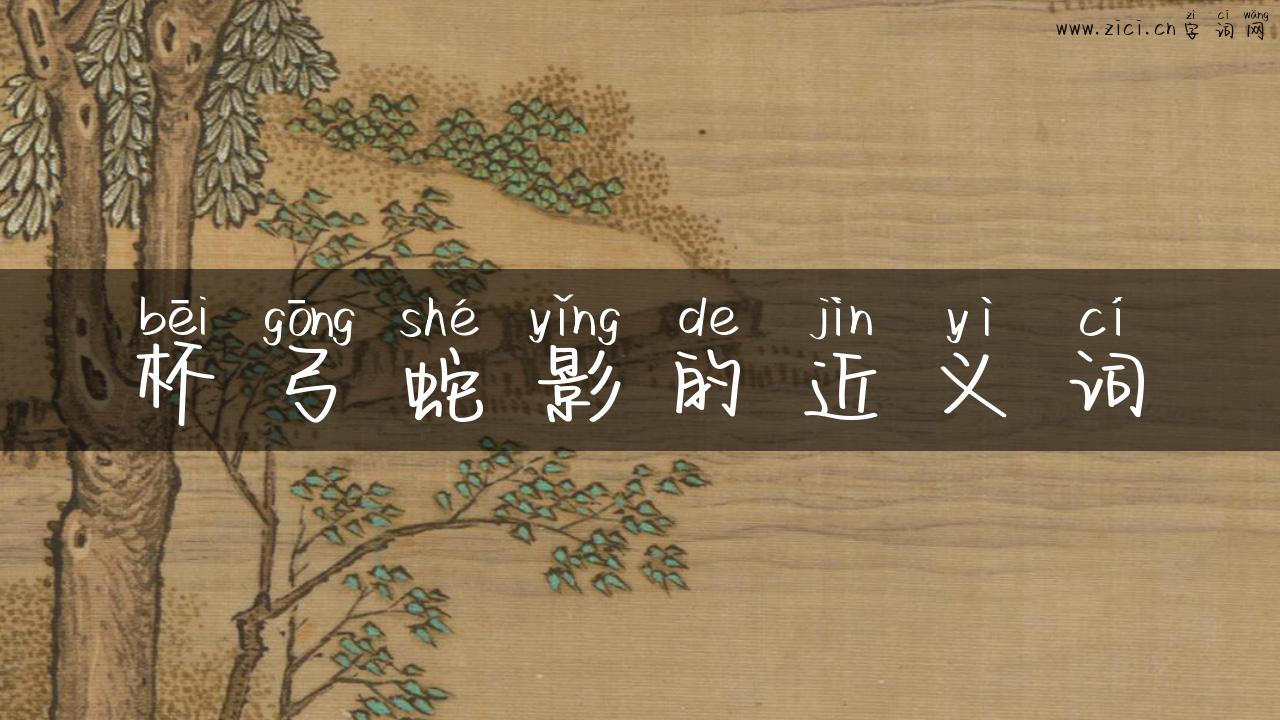 zì cí wǎng
www.zici.cn 字词网
bēi gōng shé yǐng de jìn yì cí
杯弓蛇影的近义词